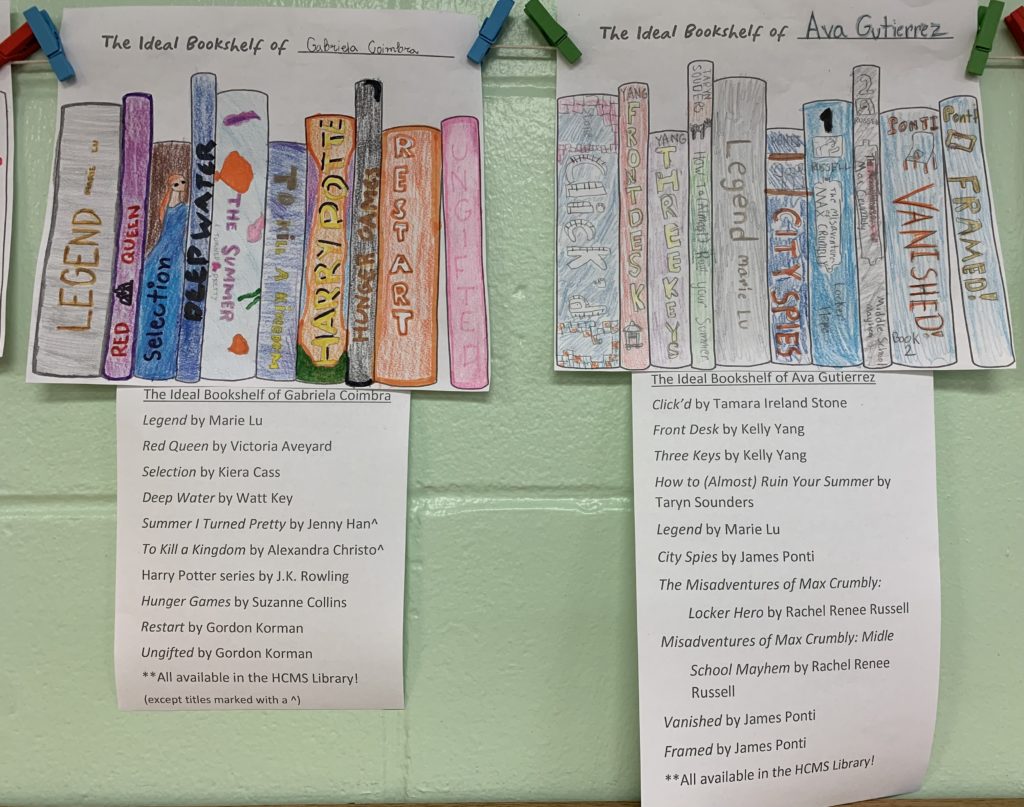 The Ideal Bookshelf of Gabriela Coimbra
LEGEND
RED QUEEN
Selection
DEEP WATER
THE SUMMER
TO KILL A KINGDOM
HARRY POTTE
HUNGER GAMES
RESTART
UNGIFTED
The Ideal Bookshelf of Gabriela Coimbra
Legend by Marie Lu
Red Queen by Victoria Aveyard
Selection by Kiera Cass
Deep Water by Watt Key
Summer I Turned Pretty by Jenny Han^
To Kill a Kingdom by Alexandra Christo^
Harry Potter series by J.K. Rowling
Hunger Games by Suzanne Collins
Restart by Gordon Korman
Ungifted by Gordon Korman
**All available in the HCMS Library!
(except titles marked with a ^)
The Ideal Bookshelf of Ava Gutierrez
CLICK'd
YANG
FRONT DESK
YANG
THREE KEYS
How to (Almost) Ruin your Summer
Legend marie Lu
CITY SPIES
1
RUSSELL
The Misadventures of MAX CRUMBLY
Locker Hero
2
Max Crumbly
Middle School Mayhem
PONTI
VANISHED!
Book 2
Ponti
FRAMED!
The Ideal Bookshelf of Ava Gutierrez
Click'd by Tamara Ireland Stone
Front Desk by Kelly Yang
Three Keys by Kelly Yang
How to (Almost) Ruin Your Summer by
Taryn Sounders
Legend by Marie Lu
City Spies by James Ponti
The Misadventures of Max Crumbly:
Locker Hero by Rachel Renee Russell
Misadventures of Max Crumbly: Midle
School Mayhem by Rachel Renee
Russell
Vanished by James Ponti
Framed by James Ponti
**All available in the HCMS Library!